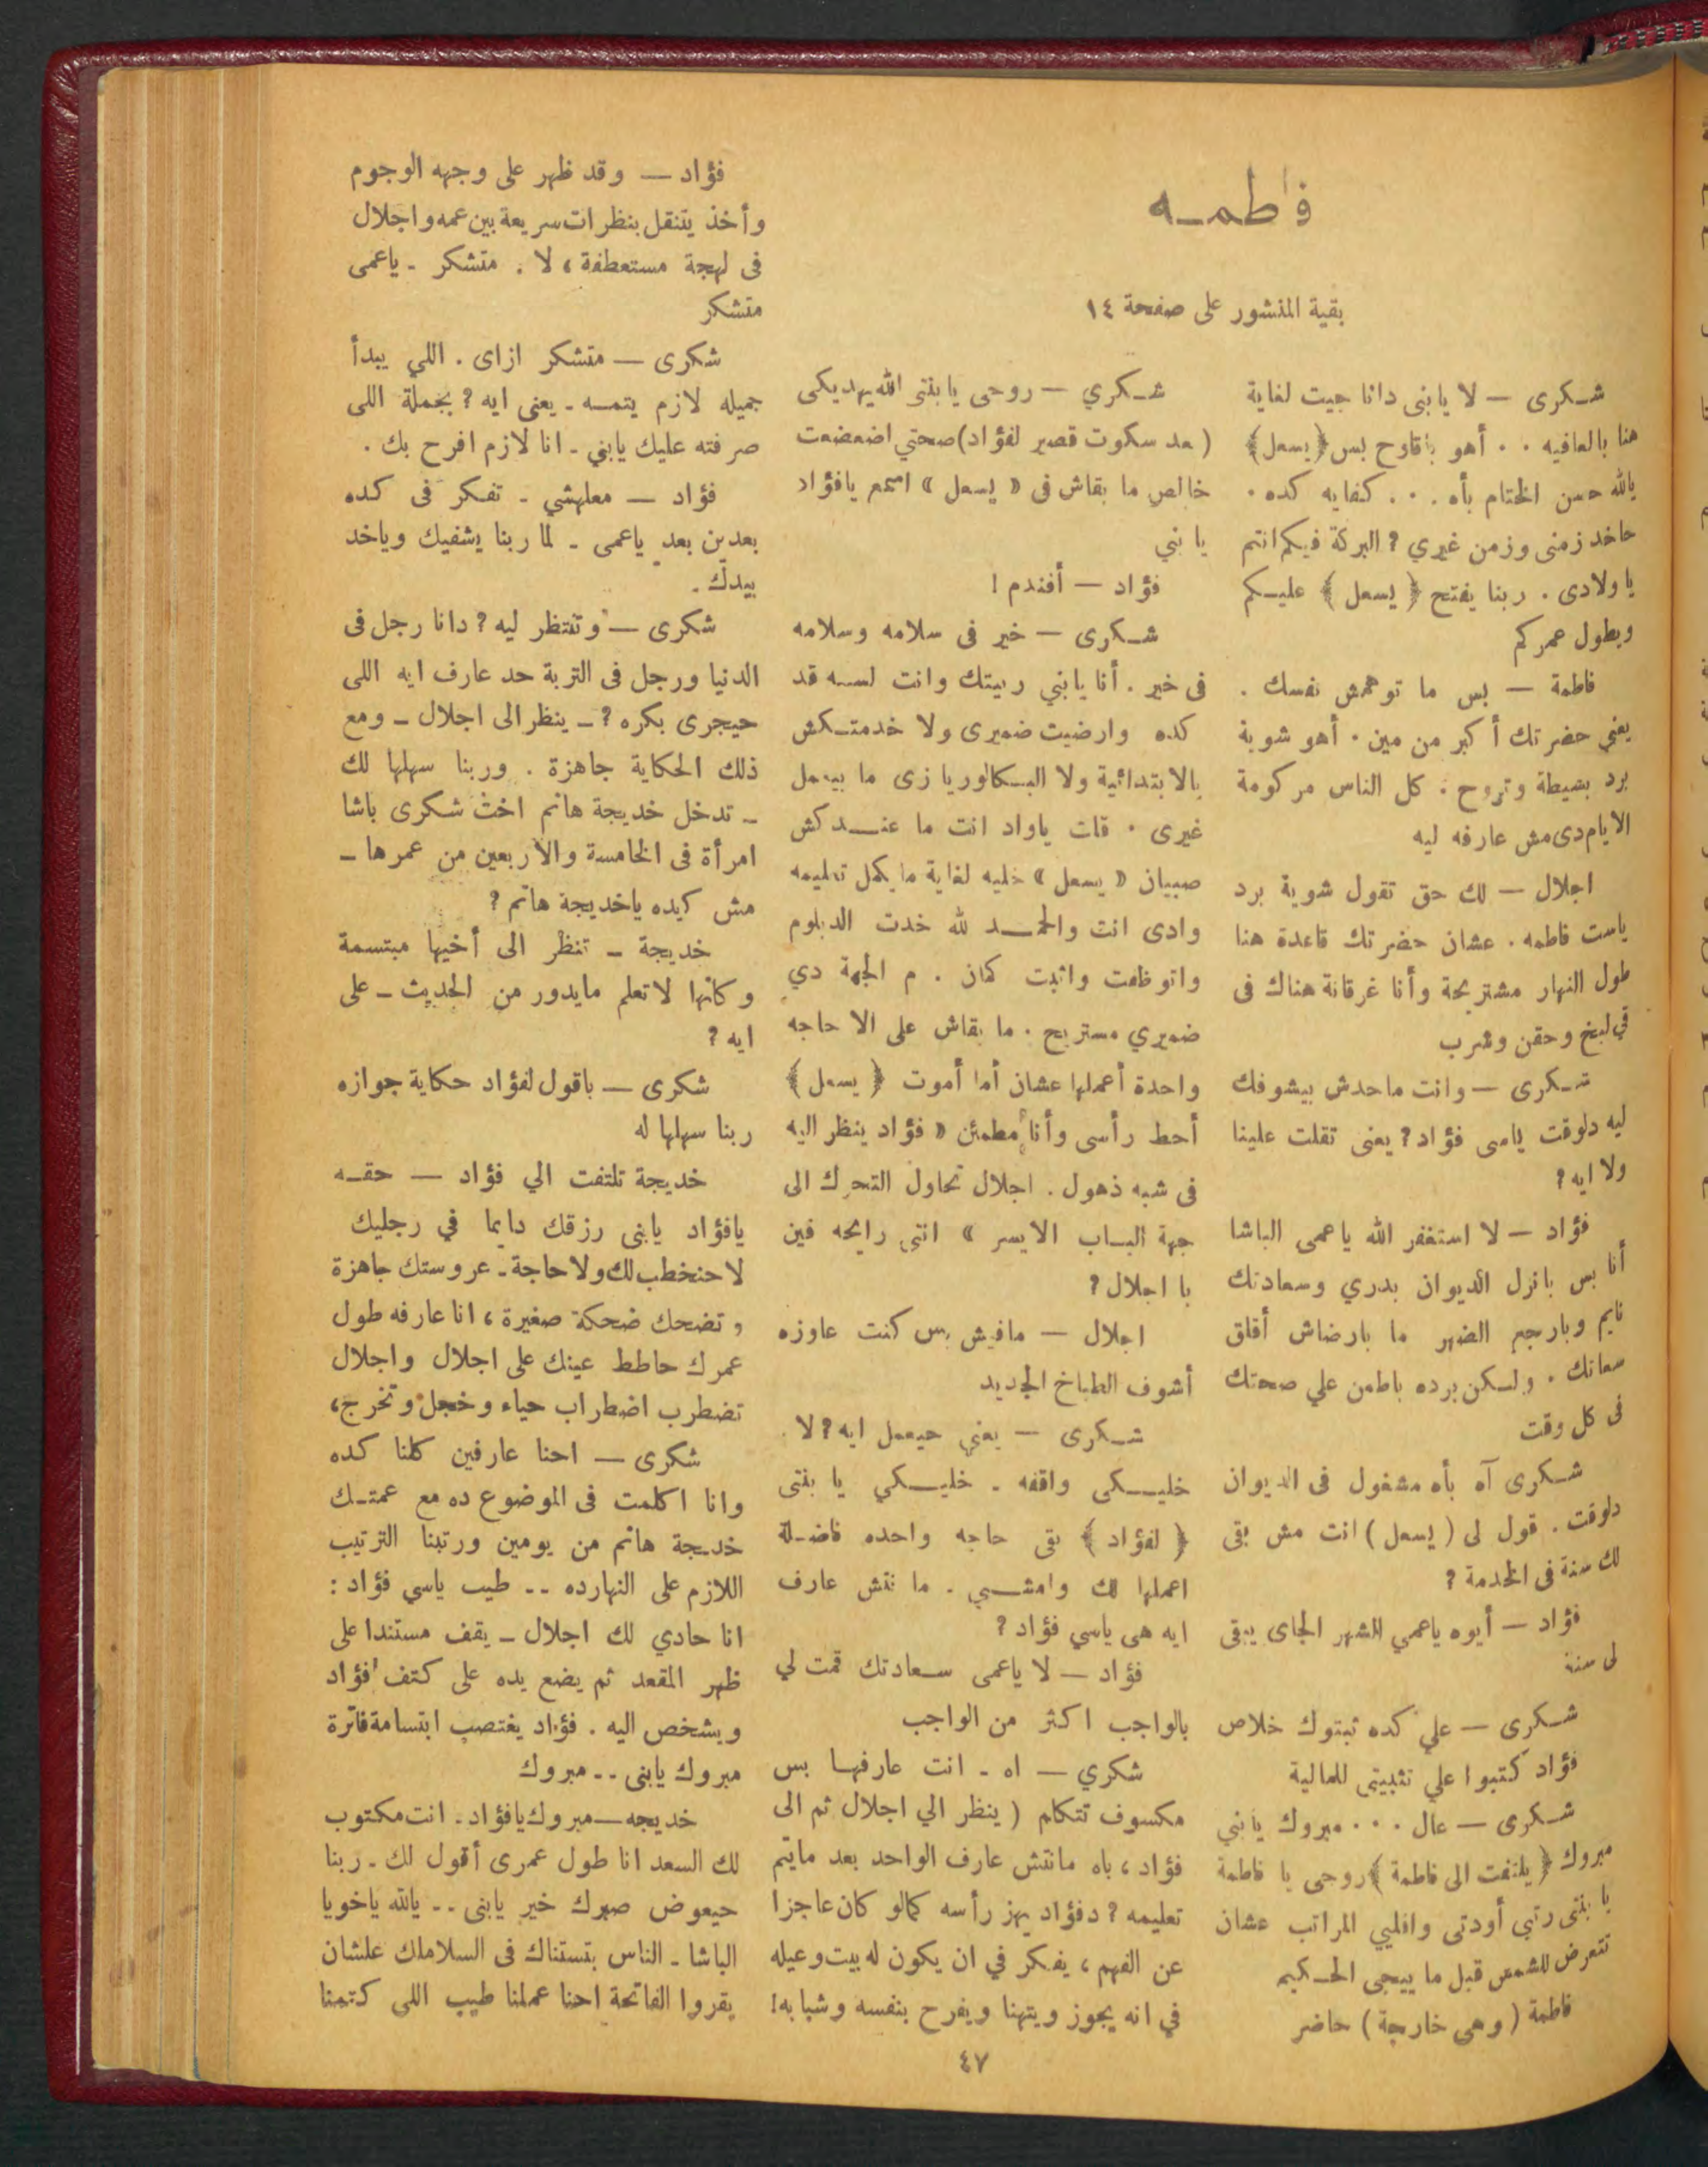 فاطمـه
بقية المنشور على صفحة ١٤
شـكرى — لا يابنى دانا جيت لغاية
هنا بالعافيه . . أهو باقاوح بس (يسعل)
يالله حسن الختام بأه . . . كفايه كده .
حاخد زمنى وزمن غيري ? البركة فيكم انتم
ياولادى . ربنا يفتح ( يسعل ) عليـكم
ويطول عمركم
فاطمة — بس ما توهمش نفسك .
يعني حضرتك أكبر من مين . أهو شوية
برد بسيطة وتروح . كل الناس مركومة
الايام دى مش عارفه ليه
اجلال — لك حق تقول شوية برد
ياست فاطمه . عشان حضرتك قاعدة هنا
طول النهار مشتريحة وأنا غرقانة هناك فى
فى لبخ وحقن وشرب
شـكرى — وانت ماحدش بيشوفك
ليه دلوقت ياسى فؤاد ? يعنى تقلت علينا
ولا ايه ?
فؤاد — لا استغفر الله ياعمى الباشا
أنا بس بانزل الديوان بدري وسعادتك
نايم وبارجع الضهر ما بارضاش أقلق
سعاتك . ولـكن برده باطمن علي صحتك
فى كل وقت
شـكرى آه بأه مشغول فى الديوان
دلوقت . قول لى ( يسعل ) انت مش بقى
لك سنة فى الخدمة ?
فؤاد — أيوه ياعمي الشهر الجاى يبقى
لى سنة
شـكرى — علي كده ثبتوك خلاص
فؤاد كتبوا علي تثبيتى للمالية
شـكرى — عال . . . مبروك يابني
مبروك ( يلتفت الى فاطمة ) روحى يا فاطمة
يا بنتى رتبي أودتى واقلبي المراتب عشان
تتعرض للشمس قبل ما ييجى الحـكيم
فاطمة ( وهى خارجة ) حاضر
شـكري — روحى يابنتى الله يهديكى
( بعد سكوت قصير لفؤاد) صحتي اضعضعت
خالص ما بقاش فى « يسعل » اسمع يافؤاد
يا بني
فؤاد — أفندم !
شـكرى — خير فى سلامه وسلامه
فى خير . أنا يابني ربيتك وانت لسـه قد
كده وارضيت ضميرى ولا خدمتـكش
بالابتدائية ولا البـكالوريا زى ما بيعمل
غيرى . قلت ياواد انت ما عنـدكش
صبيان « يسعل » خليه لغاية ما يكمل تعليمه
وادى انت والحمـد لله خدت الدبلوم
واتوظفت واثبت كمان . م الجهة دي
ضميري مستريح . ما بقاش على الا حاجه
واحدة أعملها عشان أما أموت ( يسعل )
أحط رأسى وأنا مطمئن « فؤاد ينظر اليه
فى شبه ذهول . اجلال تحاول التحرك الى
جهة البـاب الايسر » انتى رايحه فين
يا اجلال ?
اجلال — مافيش بس كنت عاوزه
أشوف الطباخ الجديد
شـكرى — يعني حيعمل ايه ? لا .
خليـكى واقفه . خليـكي يا بنتى
( لفؤاد ) بقى حاجه واحده فاضـلة
اعملها لك وامشـي . ما نتش عارف
ايه هى ياسي فؤاد ?
فؤاد — لا ياعمى سـعادتك قمت لي
بالواجب اكثر من الواجب
شكري — اه - انت عارفهـا بس
مكسوف تتكلم ( ينظر الي اجلال ثم الى
فؤاد ، باه مانتش عارف الواحد بعد مايتم
تعليمه ? دفؤاد يهز رأسه كمالو كان عاجزا
عن الفهم ، يفكر في ان يكون له بيت وعيله
في انه يجوز ويتهنا ويفرح بنفسه وشبابه!
فؤاد — وقد ظهر على وجهه الوجوم
وأخذ يتنقل بنظرات سريعة بين عمه واجلال
فى لهجة مستعطفة ، لا . متشكر - ياعمى
متشكر
شكرى — متشكر ازاى . اللي يبدأ
جميله لازم يتمـه - يعنى ايه ? بجملة اللى
صرفته عليك يابني - انا لازم افرح بك .
فؤاد — معلهشي - تفكر فى كده
بعدين بعد ياعمى - لما ربنا يشفيك وياخد
بيدك .
شكرى — وتنتظر ليه ? دانا رجل فى
الدنيا ورجل فى التربة حد عارف ايه اللى
حيجرى بكره ? - ينظر الى اجلال - ومع
ذلك الحكاية جاهزة . وربنا سهلها لك
- تدخل خديجة هانم اخت شكرى باشا
امرأة فى الخامسة والاربعين من عمرها -
مش كيده ياخديجة هانم ?
خديجة - تنظر الى أخيها مبتسمة
وكانها لاتعلم مايدور من الحديث - على
ايه ?
شكرى — باقول لفؤاد حكاية جوازه
ربنا سهلها له
خديجة تلتفت الي فؤاد — حقـه
يافؤاد يابنى رزقك دايما في رجليك
لاحنخطب لك ولا حاجة - عروستك جاهزة
وتضحك ضحكة صغيرة ، انا عارفه طول
عمرك حاطط عينك على اجلال واجلال
تضطرب اضطراب حياء وخجل وتخرج ،
شكرى — احنا عارفين كلنا كده
وانا اكلمت فى الموضوع ده مع عمتـك
خديجة هانم من يومين ورتبنا الترتيب
اللازم على النهارده -- طيب ياسي فؤاد :
انا حادي لك اجلال - يقف مستندا على
ظهر المقعد ثم يضع يده على كتف فؤاد
ويشخص اليه . فؤاد يغتصب ابتسامة فاترة
مبروك يابنى -- مبروك
خديجه — مبروك يافؤاد - انت مكتوب
لك السعد انا طول عمرى أقول لك - ربنا
حيعوض صبرك خير يابنى -- يالله ياخويا
الباشا - الناس بتستناك فى السلاملك علشان
يقروا الفاتحة احنا عملنا طيب اللى كتمنا
٤٧